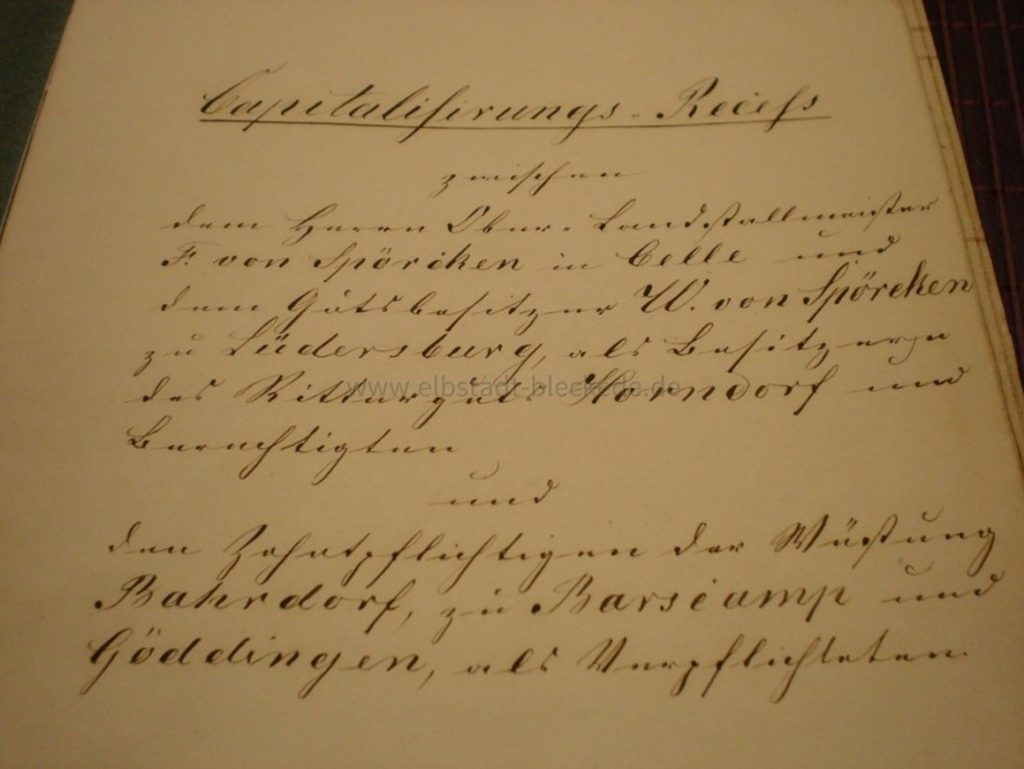 Capitalisirungs-Recess
zwischen
dem Herrn Ober-Landstallmeister
F. von Spörcken in Celle und
dem Gutsbesitzer W. von Spörcken
zu Lüdersburg, als Besitzern
des Ritterguts Horndorf und
www.elbstadt-bleckede.de
Berechtigten
und
den Zehntpflichtigen der Wüstung
Bahrdorf, zu Barscamp und
Göddingen, als Verpflichteten.